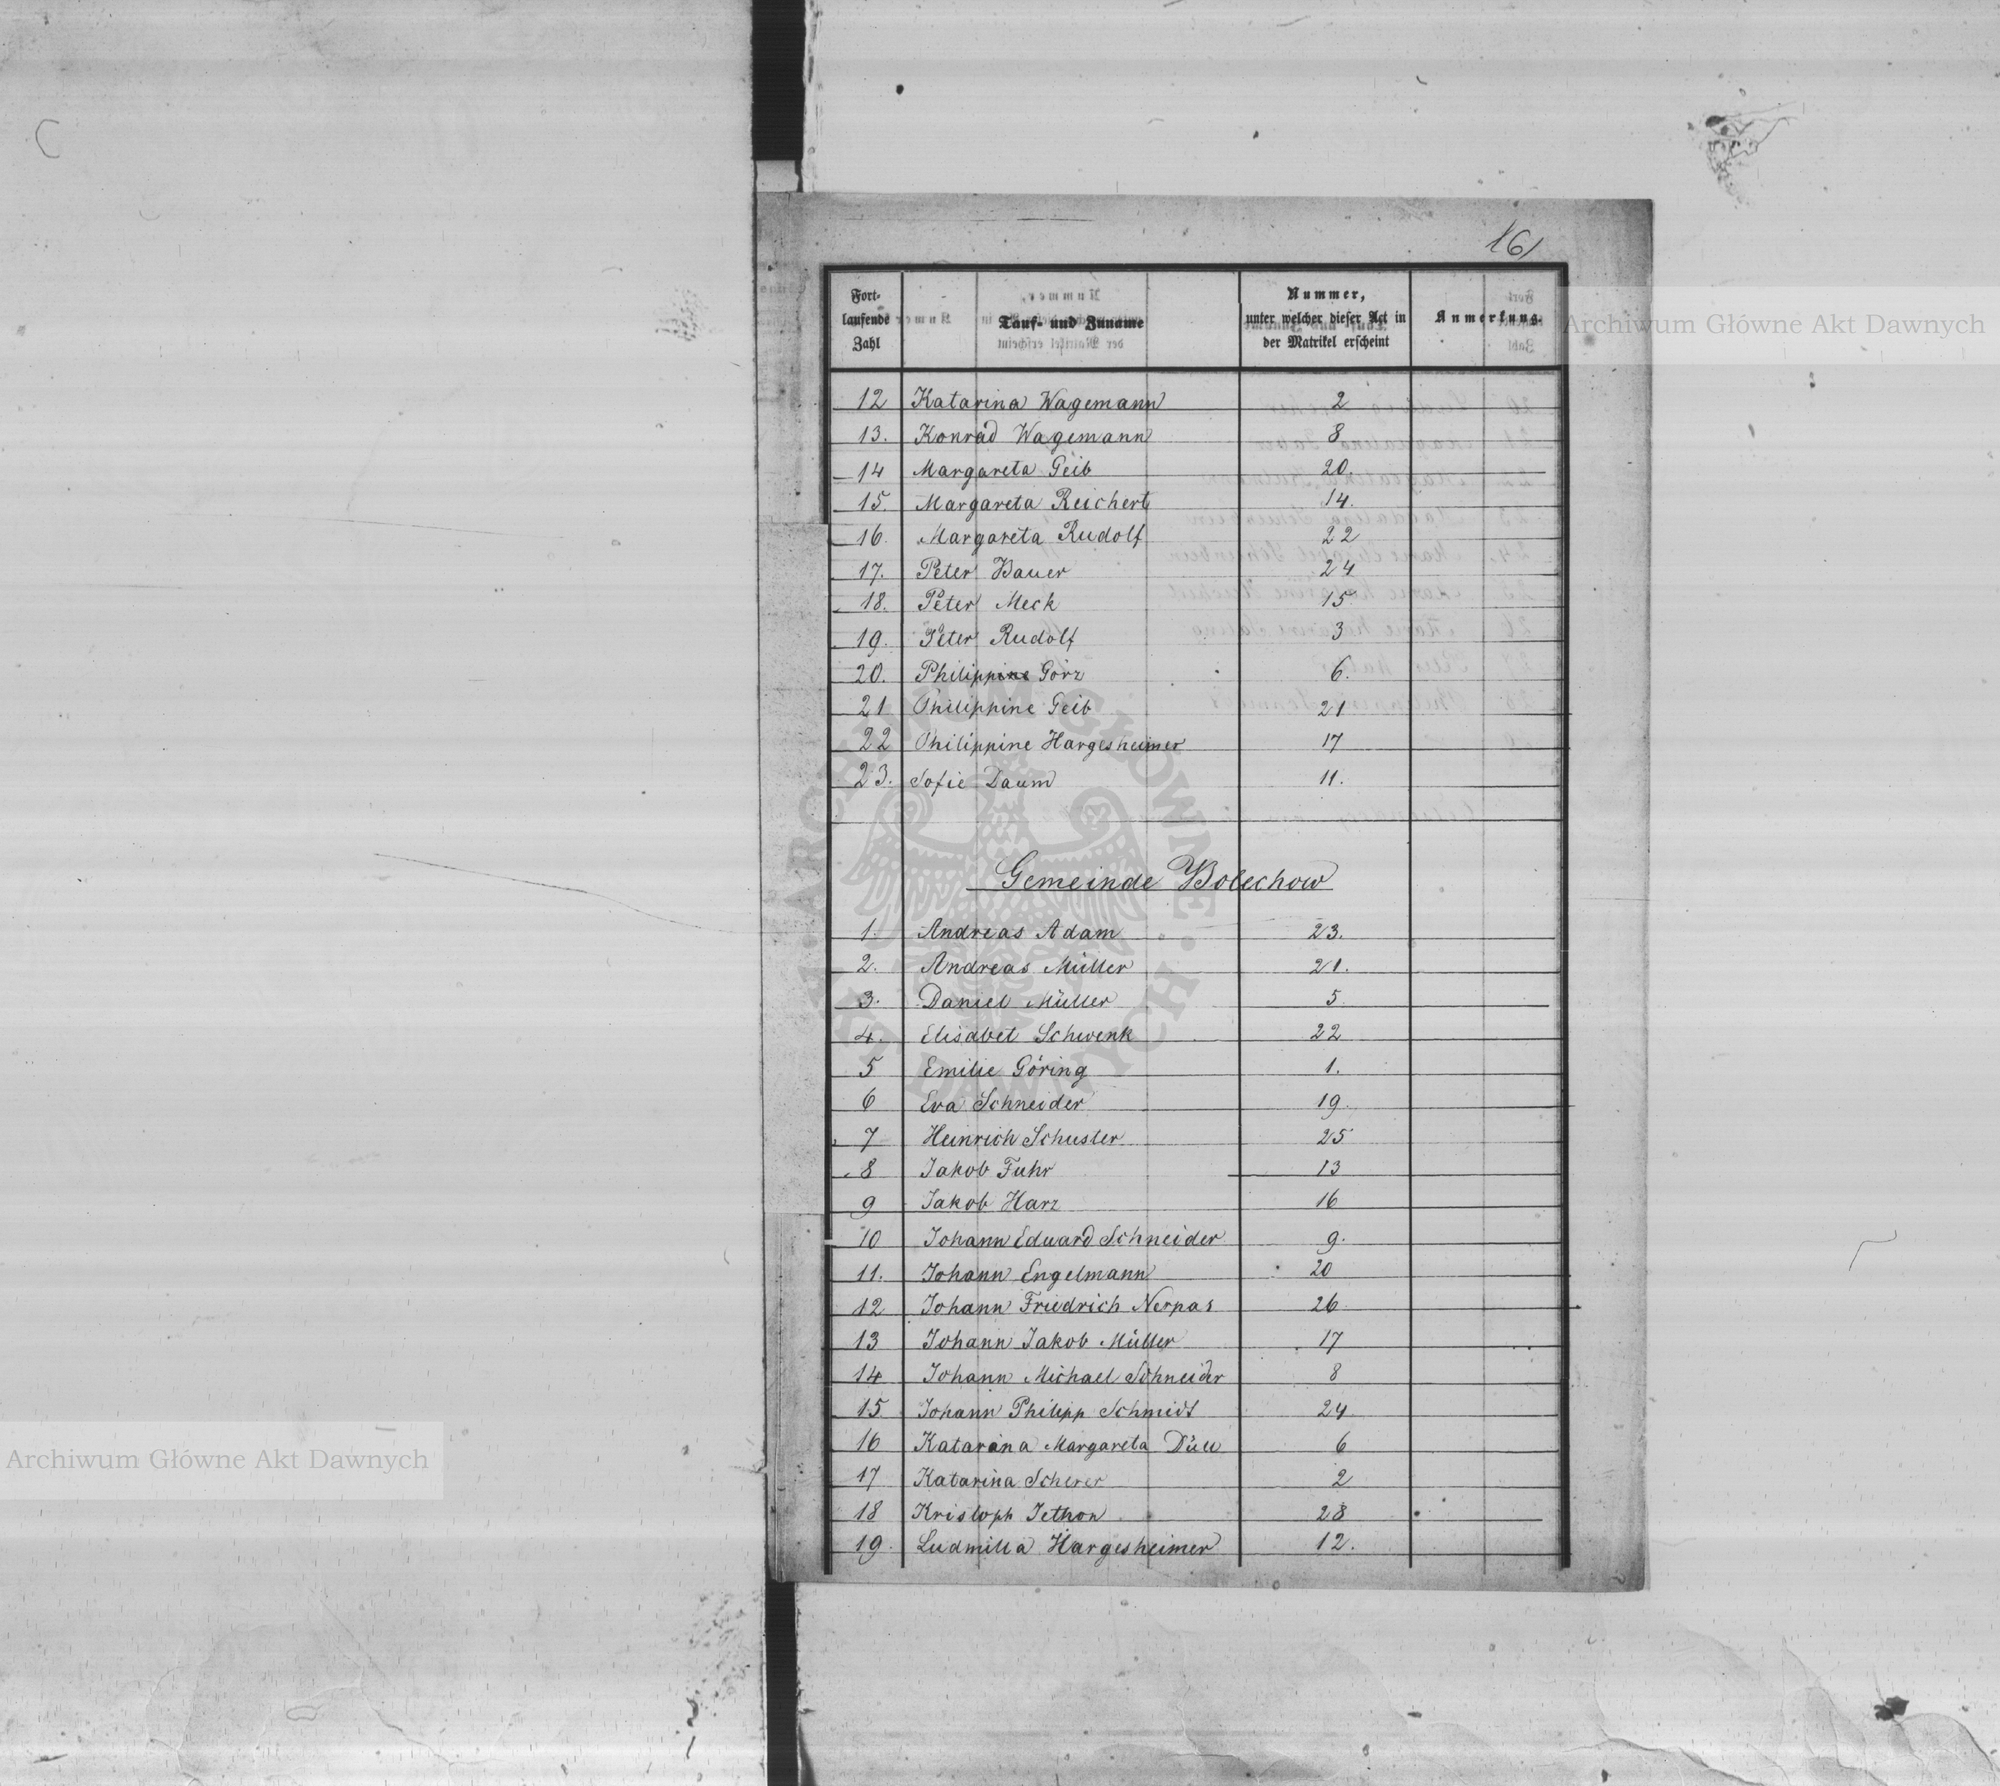 16/
Fort-
laufende
Zahl
Tauf- und Zuname
Nummer,
unter welcher dieser Act in
der Matrikel erscheint
Anmerkung.
Archiwum Główne Akt Dawnych
12 Katarina Wagemann 2
13. Konrad Wagemann 8
14 Margareta Geib 20.
15. Margareta Reichert 14.
16. Margareta Rudolf 22
17. Peter Bauer 24
18. Peter Meck 15
19. Peter Rudolf 3
20. Philippine Görz 6.
21 Philippine Geib 21
22 Philippine Hargesheimer 17
23. Sofie Daum 11.
Gemeinde Bolechow
1. Andreas Adam 23.
2. Andreas Müller 21.
3. Daniel Müller 5
4. Elisabet Schwenk 22
5 Emilie Göring 1.
6 Eva Schneider 19.
7 Heinrich Schuster 25
8 Jakob Fuhr 13
9 Jakob Harz 16
10 Johann Eduard Schneider 9.
11. Johann Engelmann 20
12 Johann Friedrich Nerpas 26
13 Johann Jakob Müller 17
14 Johann Michael Schneider 8
15 Johann Philipp Schmidt 24
16 Katarina Margareta Düll 6
17 Katarina Scherer 2
18 Kristoph Jethon 28
19. Ludmilla Hargesheimer 12.
Archiwum Główne Akt Dawnych
ARCHIWUM GŁÓWNE AKT DAWNYCH